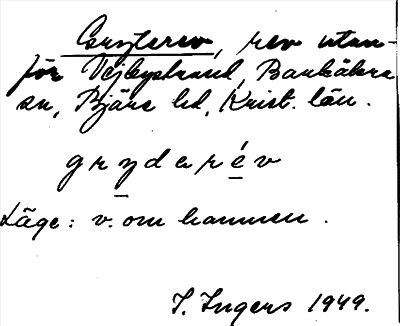 Gryterev, rev utan-
för Vejbystrand, Barkåkra
sn, Bjäre hd, Krist. län.
grydərév
Läge: v. om hamnen.
I. Ingers 1949.